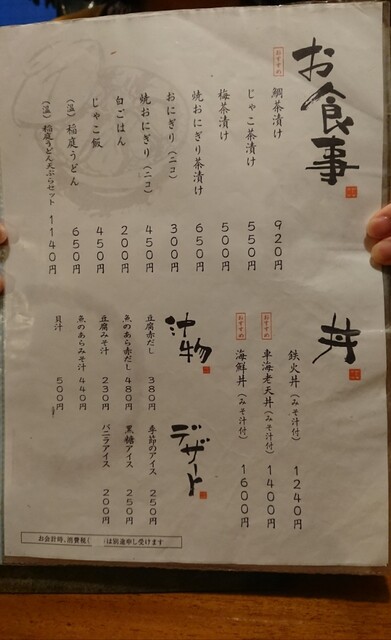 お食事
おすすめ
鯛茶漬け 920円
じゃこ茶漬け 550円
梅茶漬け 500円
焼おにぎり茶漬け 650円
おにぎり(ニコ) 300円
焼おにぎり(ニコ) 450円
白ごはん 200円
じゃこ飯 450円
(温)稲庭うどん 650円
(温)稲庭うどん天ぷらセット 1140円
丼
鉄火丼(みそ汁付) 1240円
おすすめ
車海老天丼(みそ汁付) 1400円
おすすめ
海鮮丼(みそ汁付) 1600円
汁物
豆腐赤だし 380円
魚のあら赤だし 480円
豆腐みそ汁 230円
魚のあらみそ汁 440円
貝汁 500円
デザート
季節のアイス 250円
黒糖アイス 250円
バニラアイス 200円
お会計時、消費税 は別途申し受けます